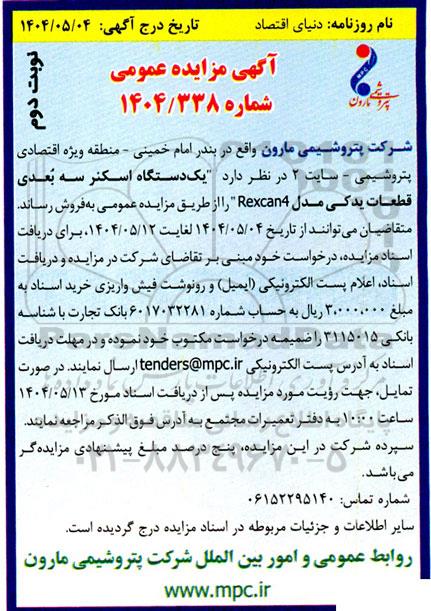 نام روزنامه: دنیای اقتصاد تاریخ درج آگهی: ۱۴۰۴/۰۵/۰۴
نوبت دوم
آگهی مزایده عمومی
شماره ۱۴۰۴/۳۳۸
پتروشیمی مارون
شرکت پتروشیمی مارون واقع در بندر امام خمینی - منطقه ویژه اقتصادی
پتروشیمی - سایت ۲ در نظر دارد "یک‌دستگاه اسکنر سه بُعدی
قطعات یدکی مدل Rexcan4" را از طریق مزایده عمومی به‌فروش رساند.
متقاضیان می‌توانند از تاریخ ۱۴۰۴/۰۵/۰۴ لغایت ۱۴۰۴/۰۵/۱۲، برای دریافت
اسناد مزایده، درخواست خود مبنی بر تقاضای شرکت در مزایده و دریافت
اسناد، اعلام پست الکترونیکی (ایمیل) و رونوشت فیش واریزی خرید اسناد به
مبلغ ۳،۰۰۰،۰۰۰ ریال به حساب شماره ۶۰۱۷۰۳۲۲۸۱ بانک تجارت با شناسه
بانکی ۳۱۱۵۰۱۵ را ضمیمه درخواست مکتوب خود نموده و در مهلت دریافت
اسناد به آدرس پست الکترونیکی tenders@mpc.ir ارسال نمایند. در صورت
تمایل، جهت رؤیت مورد مزایده پس از دریافت اسناد مورخ ۱۴۰۴/۰۵/۱۳
ساعت ۱۰:۰۰ به دفتر تعمیرات مجتمع به آدرس فوق‌الذکر مراجعه نمایند.
سپرده شرکت در این مزایده، پنج درصد مبلغ پیشنهادی مزایده‌گر
می‌باشد.
شماره تماس: ۰۶۱۵۲۲۹۵۱۴۰
سایر اطلاعات و جزئیات مربوطه در اسناد مزایده درج گردیده است.
روابط عمومی و امور بین الملل شرکت پتروشیمی مارون
www.mpc.ir